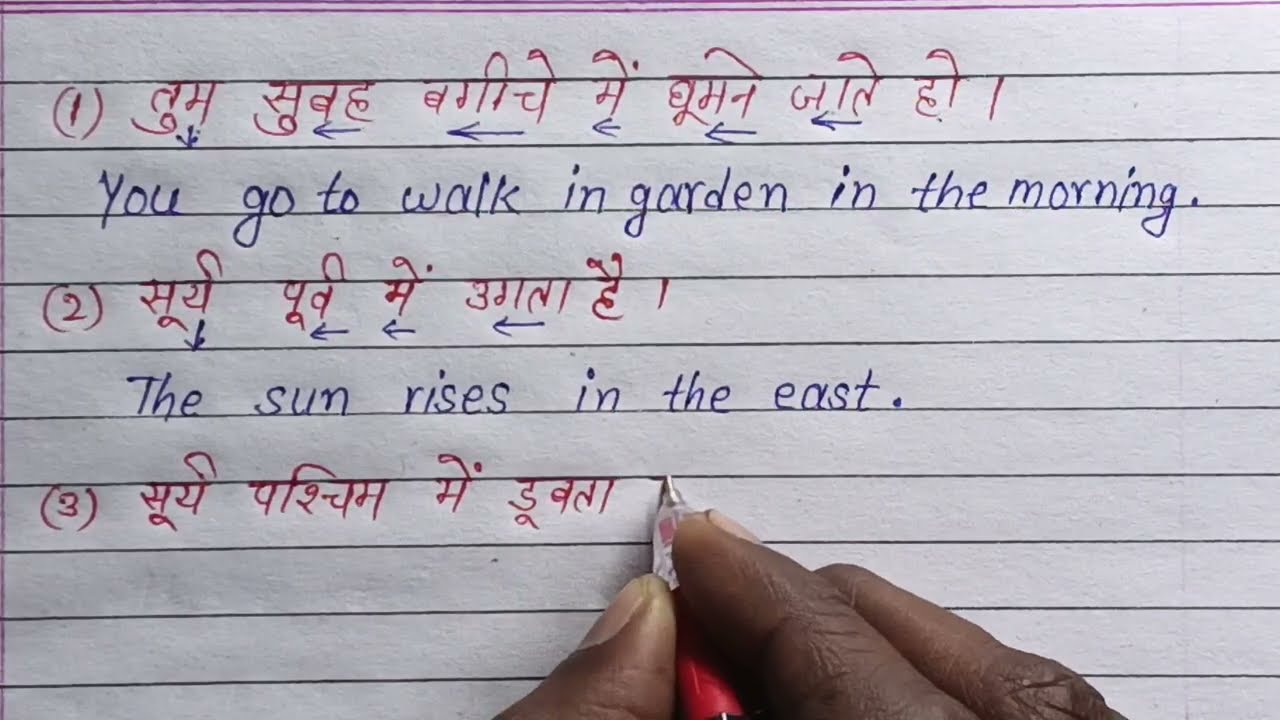 (1) तुम सुबह बगीचे में घूमने जाते हो।
You go to walk in garden in the morning.
(2) सूर्य पूर्व में उगता है।
The sun rises in the east.
(3) सूर्य पश्चिम में डूबता